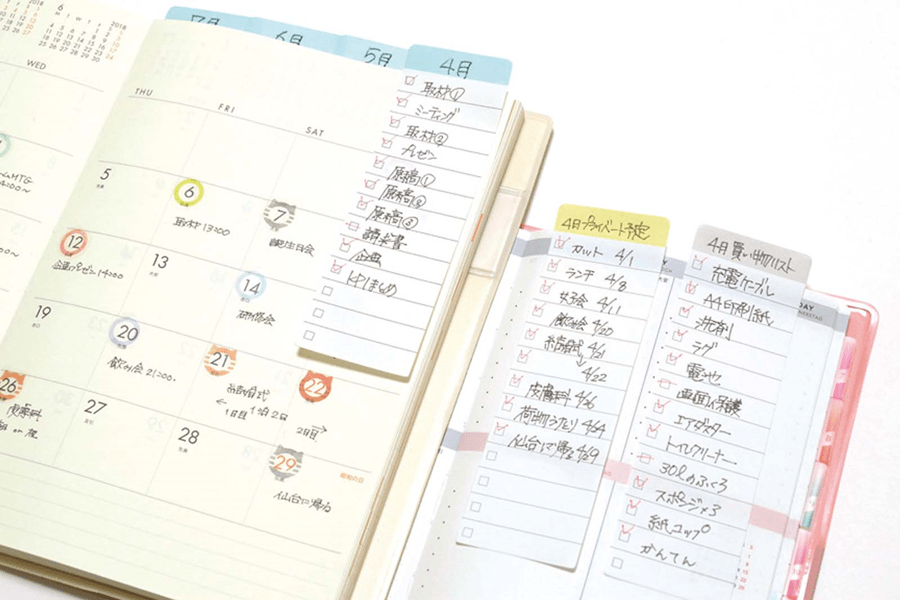 2018
6
2018
WED
THU
FRI
SAT
5
6
取材 13:00
7
誕生日会
12
企画プレゼン 14:00
13
14
研修会
19
20
飲み会 21:00
21
お結婚式
1日目
1泊2日
22
2日目
26
皮膚科
27
28
29
昭和の日
仙台に帰る
7月
6月
5月
4月
取材①
ミーティング
取材②
プレゼン
原稿①
原稿②
原稿③
請求書
企画
HPまとめ
4月プライベート予定
カット 4/1
ランチ 4/8
女子会 4/11
飲み会 4/20
結婚式 4/21
4/22
皮膚科 4/26
仙台に帰る 4/29
4月買い物リスト
充電ケーブル
A4印刷紙
洗剤
ラグ
電池
画面保護
エアダスター
トイレクリーナー
30Lのふくろ
スポンジ×3
紙コップ
かんてん